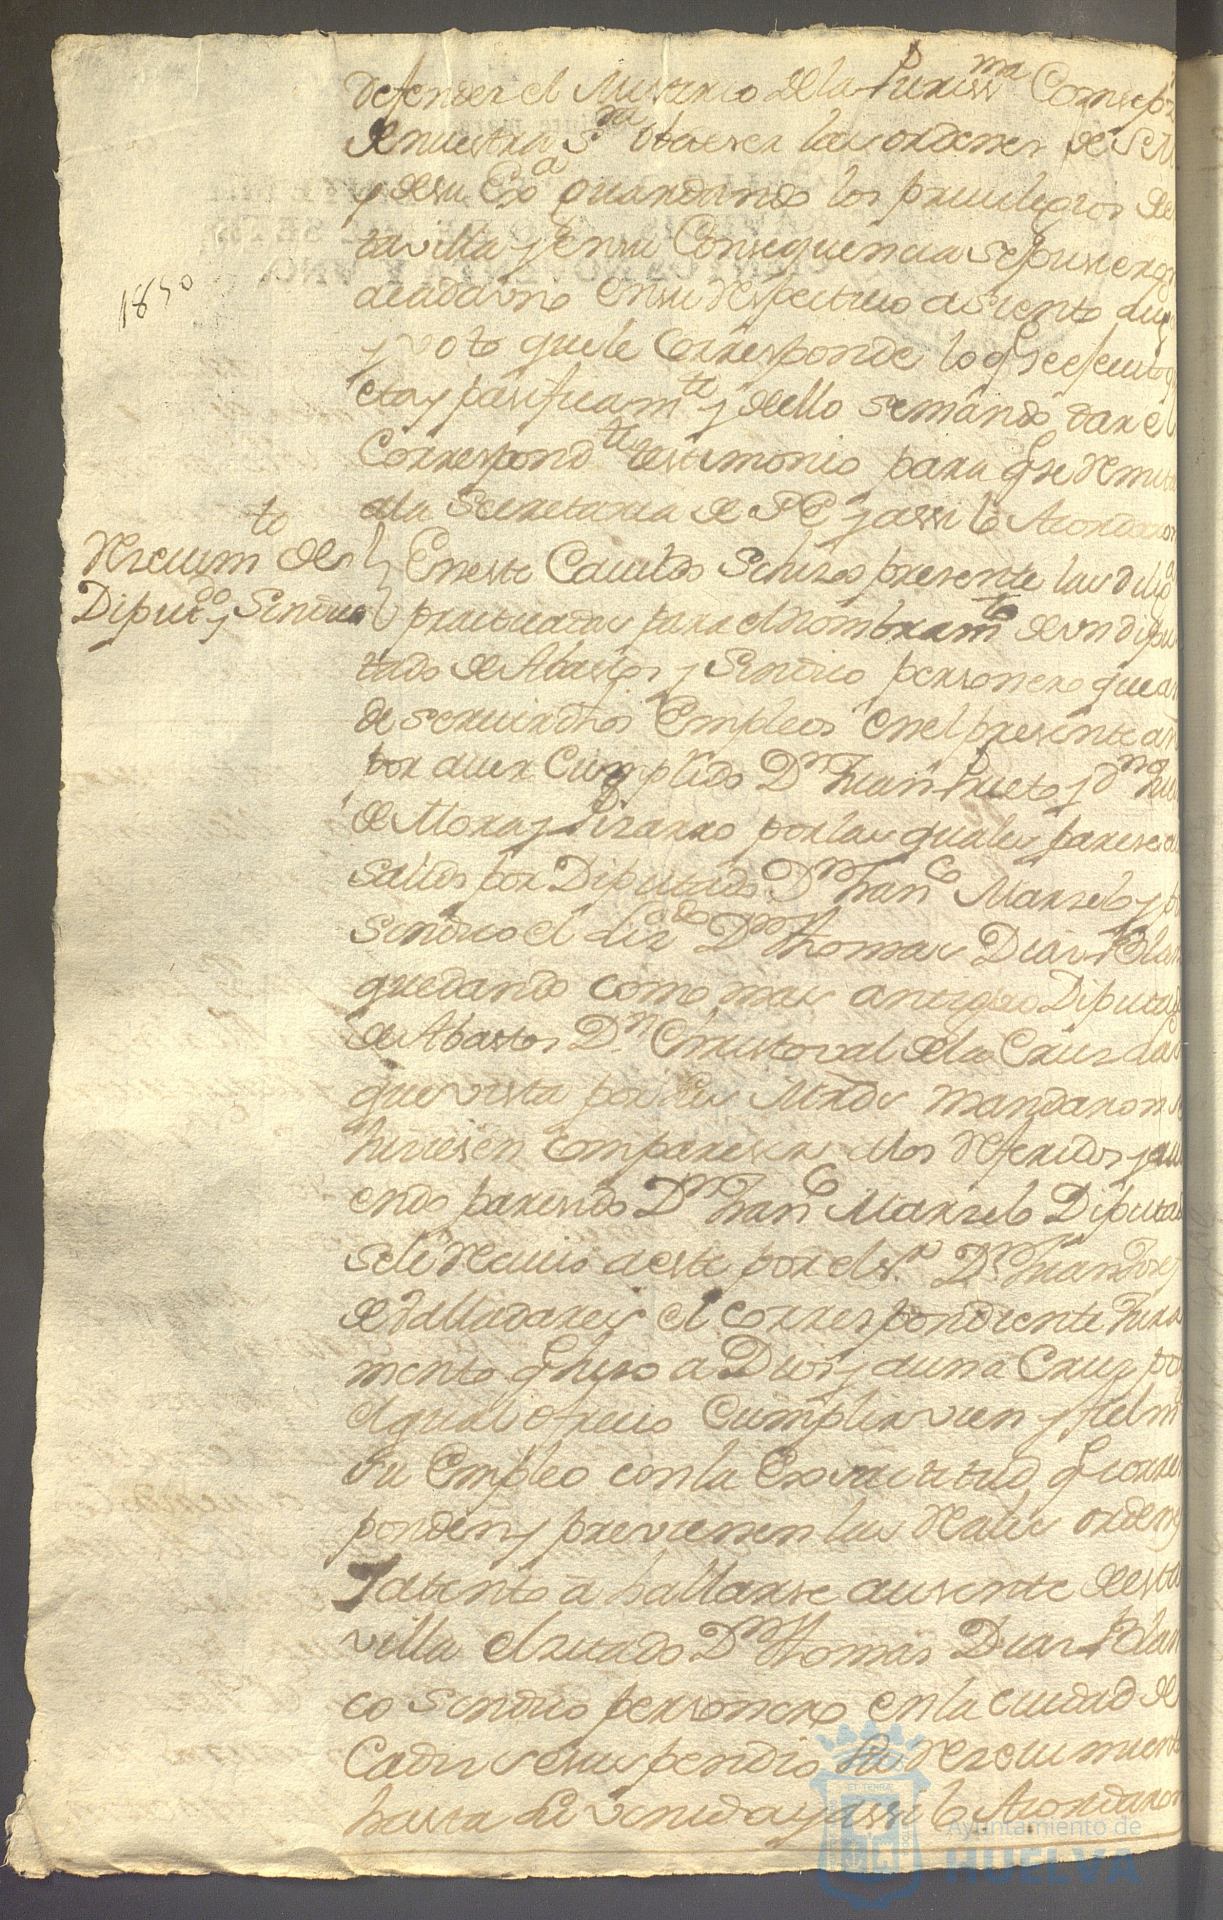 defender el Misterio de la Puriss.ma Consepz
de nuestra S.ra obserser las ordenes de S M
y de su Ex.a guardando los previlegios de
ta villa y en su Consequencia se pusieron
a cada uno en su respectivo asiento
y voto que le Corresponde lo q.e se efecuto
eta y pasificam.te y de ello se mando dar el
Correspond.te testimonio para q.e se remita
a la Secretaria de S E y assi lo Acordaron
Reseuim.to de
Diput.do y Sindico
En este Cauildo se hizo presente las dilig
practicadas para el nombram.to de un dipu
tado de Abastos y Sindico personero que an
de seruir dhos Empleos en el presente añ
por auer Cumplido D.n Juan Prieto y D.n
de Mora y Pizarro por las quales parese
salido por Diputado D.n Fran.co Marzelo y p
Sindico el Liz.do D.n thomas Dias Blan
quedando como mas antiguo Diputado
de Abastos D.n Christoval de la Cruz
que vista por sus Mrds mandaron se
hiciesen comparescer a los referidos y
endo paresido D.n Fran.co Marzelo Diputad
se le reciuio a este por el s.r D.n Juan Josef
de Valladares el Correspondiente Jura
mento q.e hizo a Dios y a una Cruz por
el qual ofrecio Cumplir vien y fielm
su Empleo con la Exsactitud q.e corres
ponden y previenen las reales ordenes
Y atento a hallarse ausente de esta
villa el sitado D.n thomas Dias Blan
co Sindico personero en la ciudad de
Cadiz se suspendio su reseuimiento
hasta su venida y assi lo Acordaron
1850
Ayuntamiento de
HUELVA